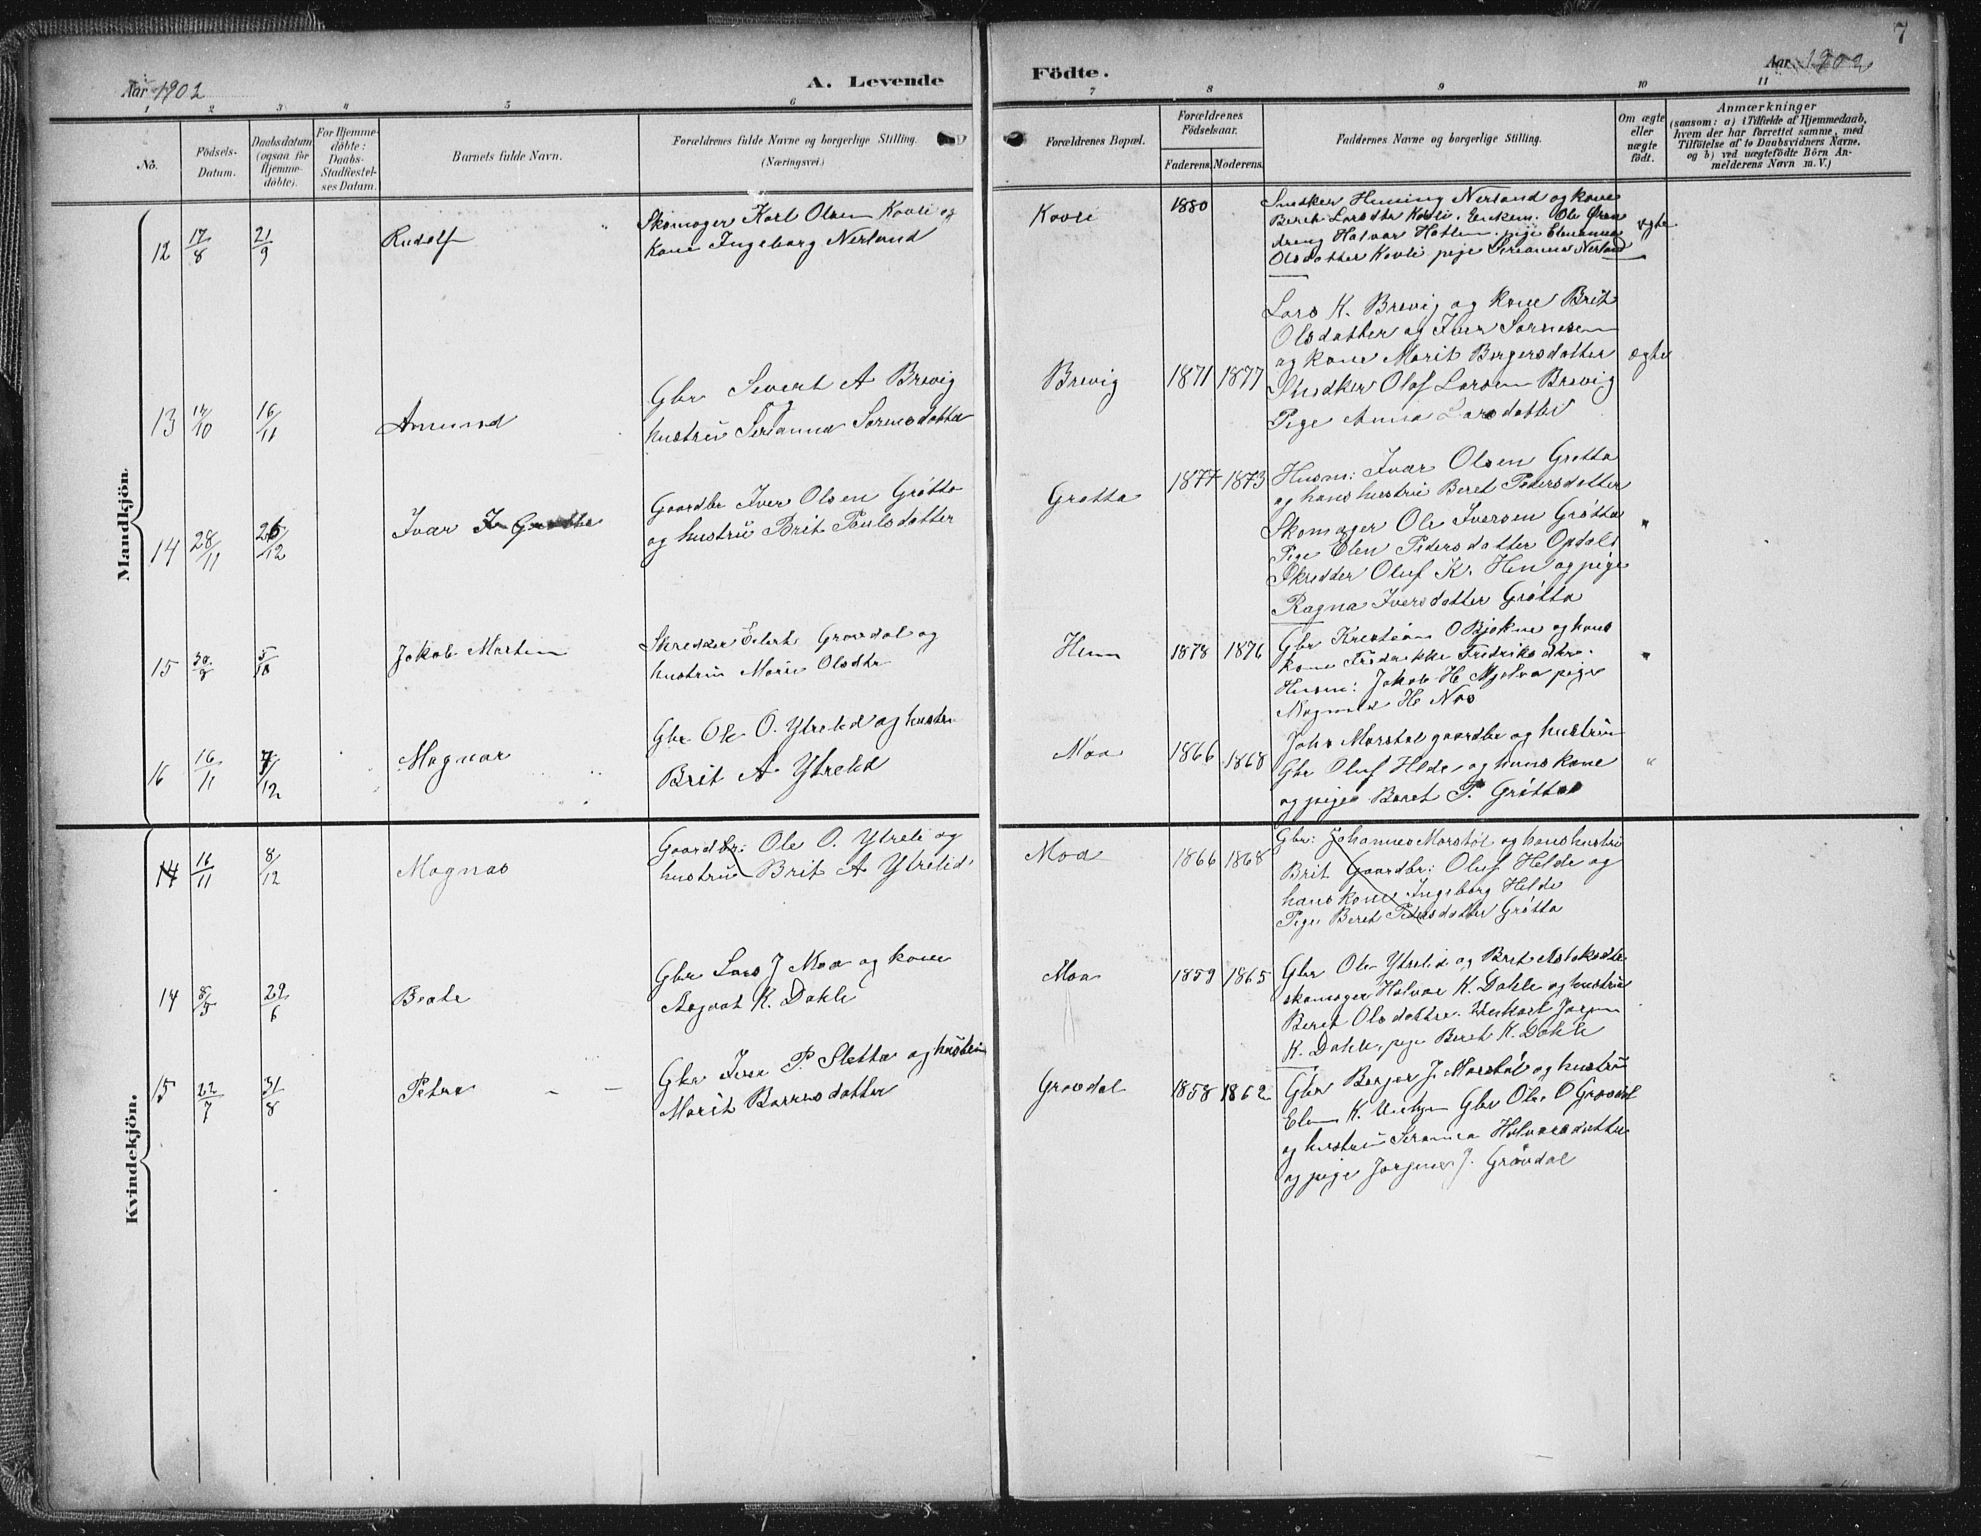 7
Aar 1902
A. Levende
Födte.
Aar 1902
1 2 3 4 5 6 7 8 9 10 11
No.
Födsels-
Datum.
Daabsdatum
(ogsaa for
Hjemme-
döbte).
For Hjemme-
döbte:
Daabs-
Stadfæstel-
ses Datum.
Barnets fulde Navn.
Forældrenes fulde Navne og borgerlige Stilling.
(Næringsvei.)
Forældrenes Bopæl.
Forældrenes
Födselsaar.
Faderens.
Moderens.
Faddernes Navne og borgerlige Stilling.
Om ægte
eller
uægte
födt.
Anmærkninger
(saasom: a) i Tilfælde af Hjemmedaab,
hvem der har forrettet samme, med
Tilföielse af to Daabsvidners Navne,
og b) ved uægtefödte Börn An-
melderens Navn m. V.)
Mandkjön.
12
17/8
21/9
Rudolf
Skomager Karl Olsen Kavli og
kone Ingeborg Nerland
Kavli
1880
Snedker Henning Nerland og kone
Beret Larsdtr Kavli. Enkem. Ole Øran
dreng Halvar Hatlen. pige
Olsdatter Kavli pige Serianna Nerland
ægte
13
17/10
16/11
Amund
Gbr Sivert A Brevig
og
hustru Serianna Sørensdatter
Brevig
1871 1877
Lars K. Brevig og kone Brit
Olsdatter og Iver Sørnesen
og kone Marit Bergersdatter
Snedker Olaf Larsen Brevig
Pige Anna Larsdatter
ægte
14
28/11
26/12
Ivar
Gaardbr Iver Olsen Grøtta
og hustru Brit Paulsdatter
Grøtta
1877 1873
Husm: Ivar Olsen Grøtta
og hans hustru Beret Pedersdatter
Skomager Ole Iversen Grøtta
Pige Elen Pedersdatter Opdal
Skredder Oluf K. Hen og pige
Ragna Iversdatter Grøtta
"
15
5/10
Jakob Martin
Skredder Eilert Grøvdal og
hustru Marie Olsdtr
Henn
1878 1876
Gbr Kristian O Bjøkne og hans
kone Fredrikke Fredriksdtr.
Husm: Jakob H Mjelva pige
Magnild H Nos
"
16
16/11
7/12
Magnar
Gbr Ole O. Ytreli og hustru
Brit A Ytreli
Moa
1866 1868
John Marstøl gaardbr og hustru
Gbr Oluf Helde og hans kone
og pige Beret P. Grøtta
"
Kvindekjön.
14
16/11
8/12
Magnas
Gaardbr: Ole O. Ytreli og
hustru Brit A Ytreli
Moa
1866 1868
Gbr: Johannes Marstøl og hans hustru
Brit Gaardbr: Oluf Helde og
hans kone Ingeborg Helde
Pige Beret Pedersdatter Grøtta
14
8/5
29/6
Beate
Gbr Lars J Moa og kone
Aagot K. Dahle
Moa
1859 1865
Gbr Ole Ytreli og Brit Aslaksdtr
skomager Halvar K. Dahle og hustru
Beret Olsdatter. Ungkarl Jørgen
K. Dahle, pige Beret K. Dahle
15
22/7
31/8
Petra
Gbr Iver P. Sletta og hustru
Marit Barresdatter
Grøvdal
1858 1862
Gbr Berger J. Marstøl og hustru
Elen K. Gbr Ole O Grøvdal
og hustru Serianna Halvorsdatter
og pige Jørgine J. Grøvdal